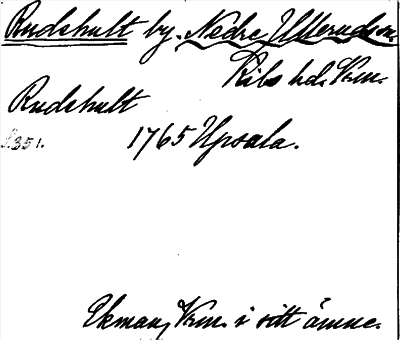 Rudshult by. Nedre Ulleruds sn.
Kils hd. Vrm.
Rudshult
S. 351. 1765 Upsala.
Ekman, Vrm. i sitt ämne.